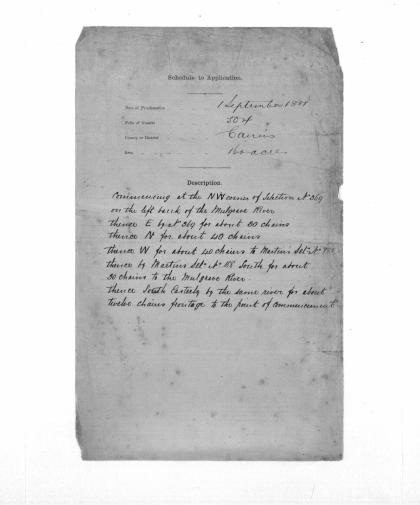 Schedule to Application.
Date of Proclamation 1 September 1881
Folio of Gazette 504
County or District Cairns
Area 160 acres
Description.
Commencing at the NW corner of Selection No 369
on the left bank of the Mulgrave River
thence E by No 369 for about 50 chains
thence N for about 40 chains
thence W for about 40 chains to Martins Seln No
thence by Martins Seln No 188 South for about
30 chains to the Mulgrave River
thence South Easterly by the same river for about
twelve chains frontage to the point of commencement